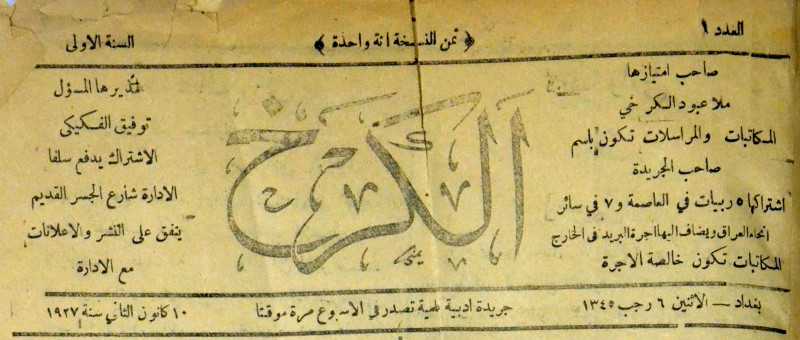 العدد ١
﴿ ثمن النسخة انة واحدة ﴾
السنة الاولى
صاحب امتيازها
ملا عبود الكرخي
المكاتبات والمراسلات تكون باسم
صاحب الجريدة
اشتراكها ٥ ربيات في العاصمة و ٧ في سائر
انحاء العراق ويضاف اليها اجرة البريد في الخارج
المكاتبات تكون خالصة الاجرة
الكرخ
مديرها المسؤل
توفيق الفكيكي
الاشتراك يدفع سلفا
الادارة شارع الجسر القديم
يتفق على النشر والاعلانات
مع الادارة
بغداد — الاثنين ٦ رجب ١٣٤٥
جريدة ادبية تصدر في الاسبوع مرة موقتا
١٠ كانون الثاني سنة ١٩٢٧